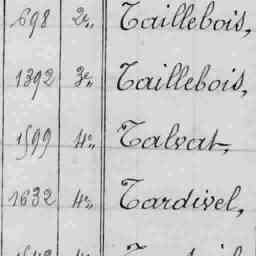 698 2e, Taillebois,
1392 3e, Taillebois,
1599 4e, Talvat,
1632 4e, Tardivel,